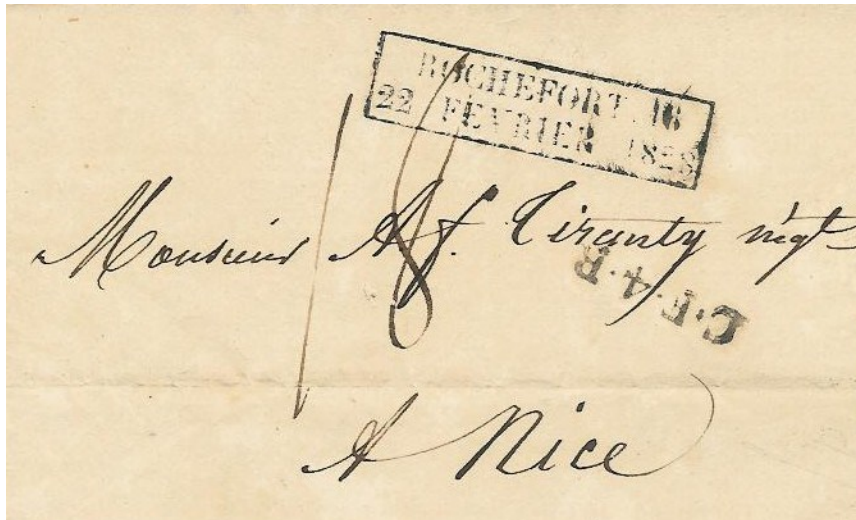 ROCHEFORT. 16
22 FÉVRIER 1828
18
Monsieur A f. Tiranty nég.t
C.F.4.R
A Nice